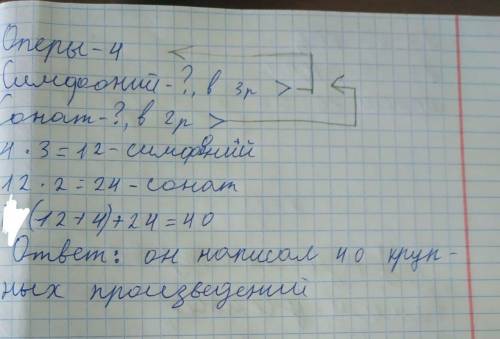 Оперы-4
Симфоний-?, в 3р >
Сонат-?, в 2р >
4 · 3 = 12 - симфоний
12 · 2 = 24 - сонат
(12 + 4) + 24 = 40
Ответ: он написал 40 круп-
ных произведений